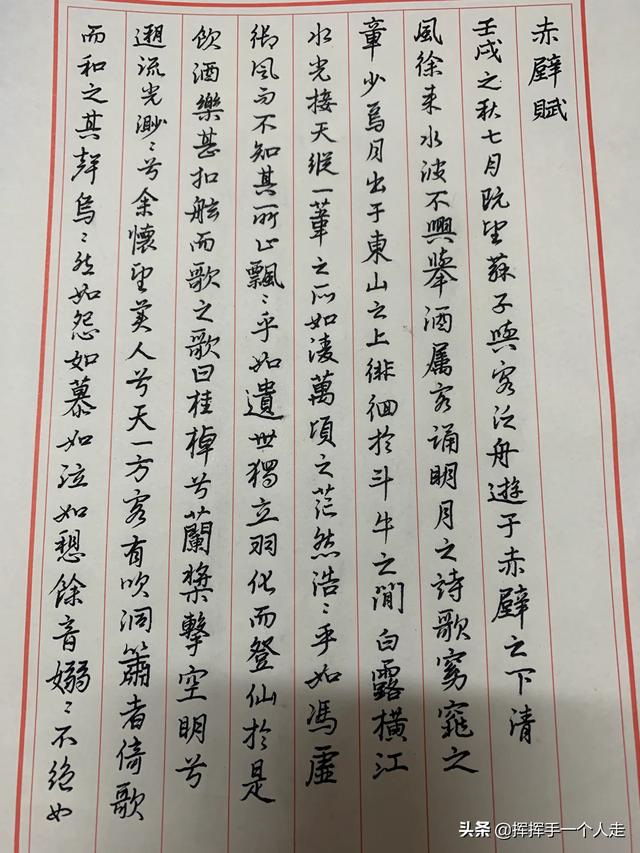 赤壁賦
壬戌之秋七月既望蘇子與客泛舟遊于赤壁之下清
風徐来水波不興舉酒属客誦明月之詩歌窈窕之
章少焉月出于東山之上徘徊於斗牛之澗白露横江
水光接天縱一葦之所如淩萬頃之茫然浩〻乎如馮虚
御风而不知其所止飄〻乎如遺世獨立羽化而登仙於是
飲酒樂甚扣舷而歌之歌曰桂棹兮蘭槳擊空明兮
遡流光渺〻兮余懷望美人兮天一方客有吹洞簫者倚歌
而和之其聲烏〻然如怨如慕如泣如愬餘音嫋〻不絕如
头条 @挥挥手一个人走